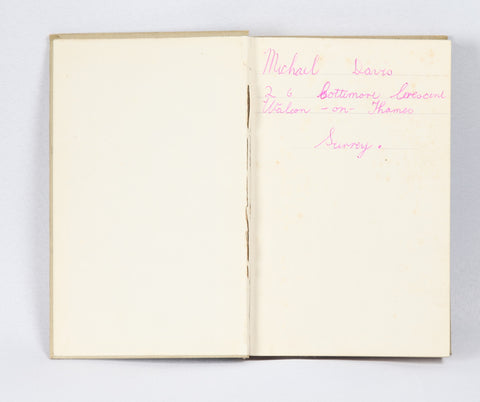 Michael Davis
26 Cottimore Crescent
Walton -on- Thames
Surrey.